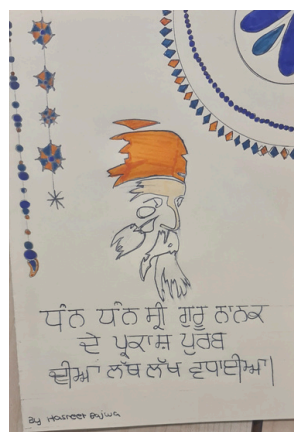 ਧੰਨ ਧੰਨ ਸ੍ਰੀ ਗੁਰੂ ਨਾਨਕ
ਦੇ ਪ੍ਰਕਾਸ਼ ਪੁਰਬ
ਦੀਆਂ ਲੱਖ ਲੱਖ ਵਧਾਈਆਂ।
By Hasreet Bajwa